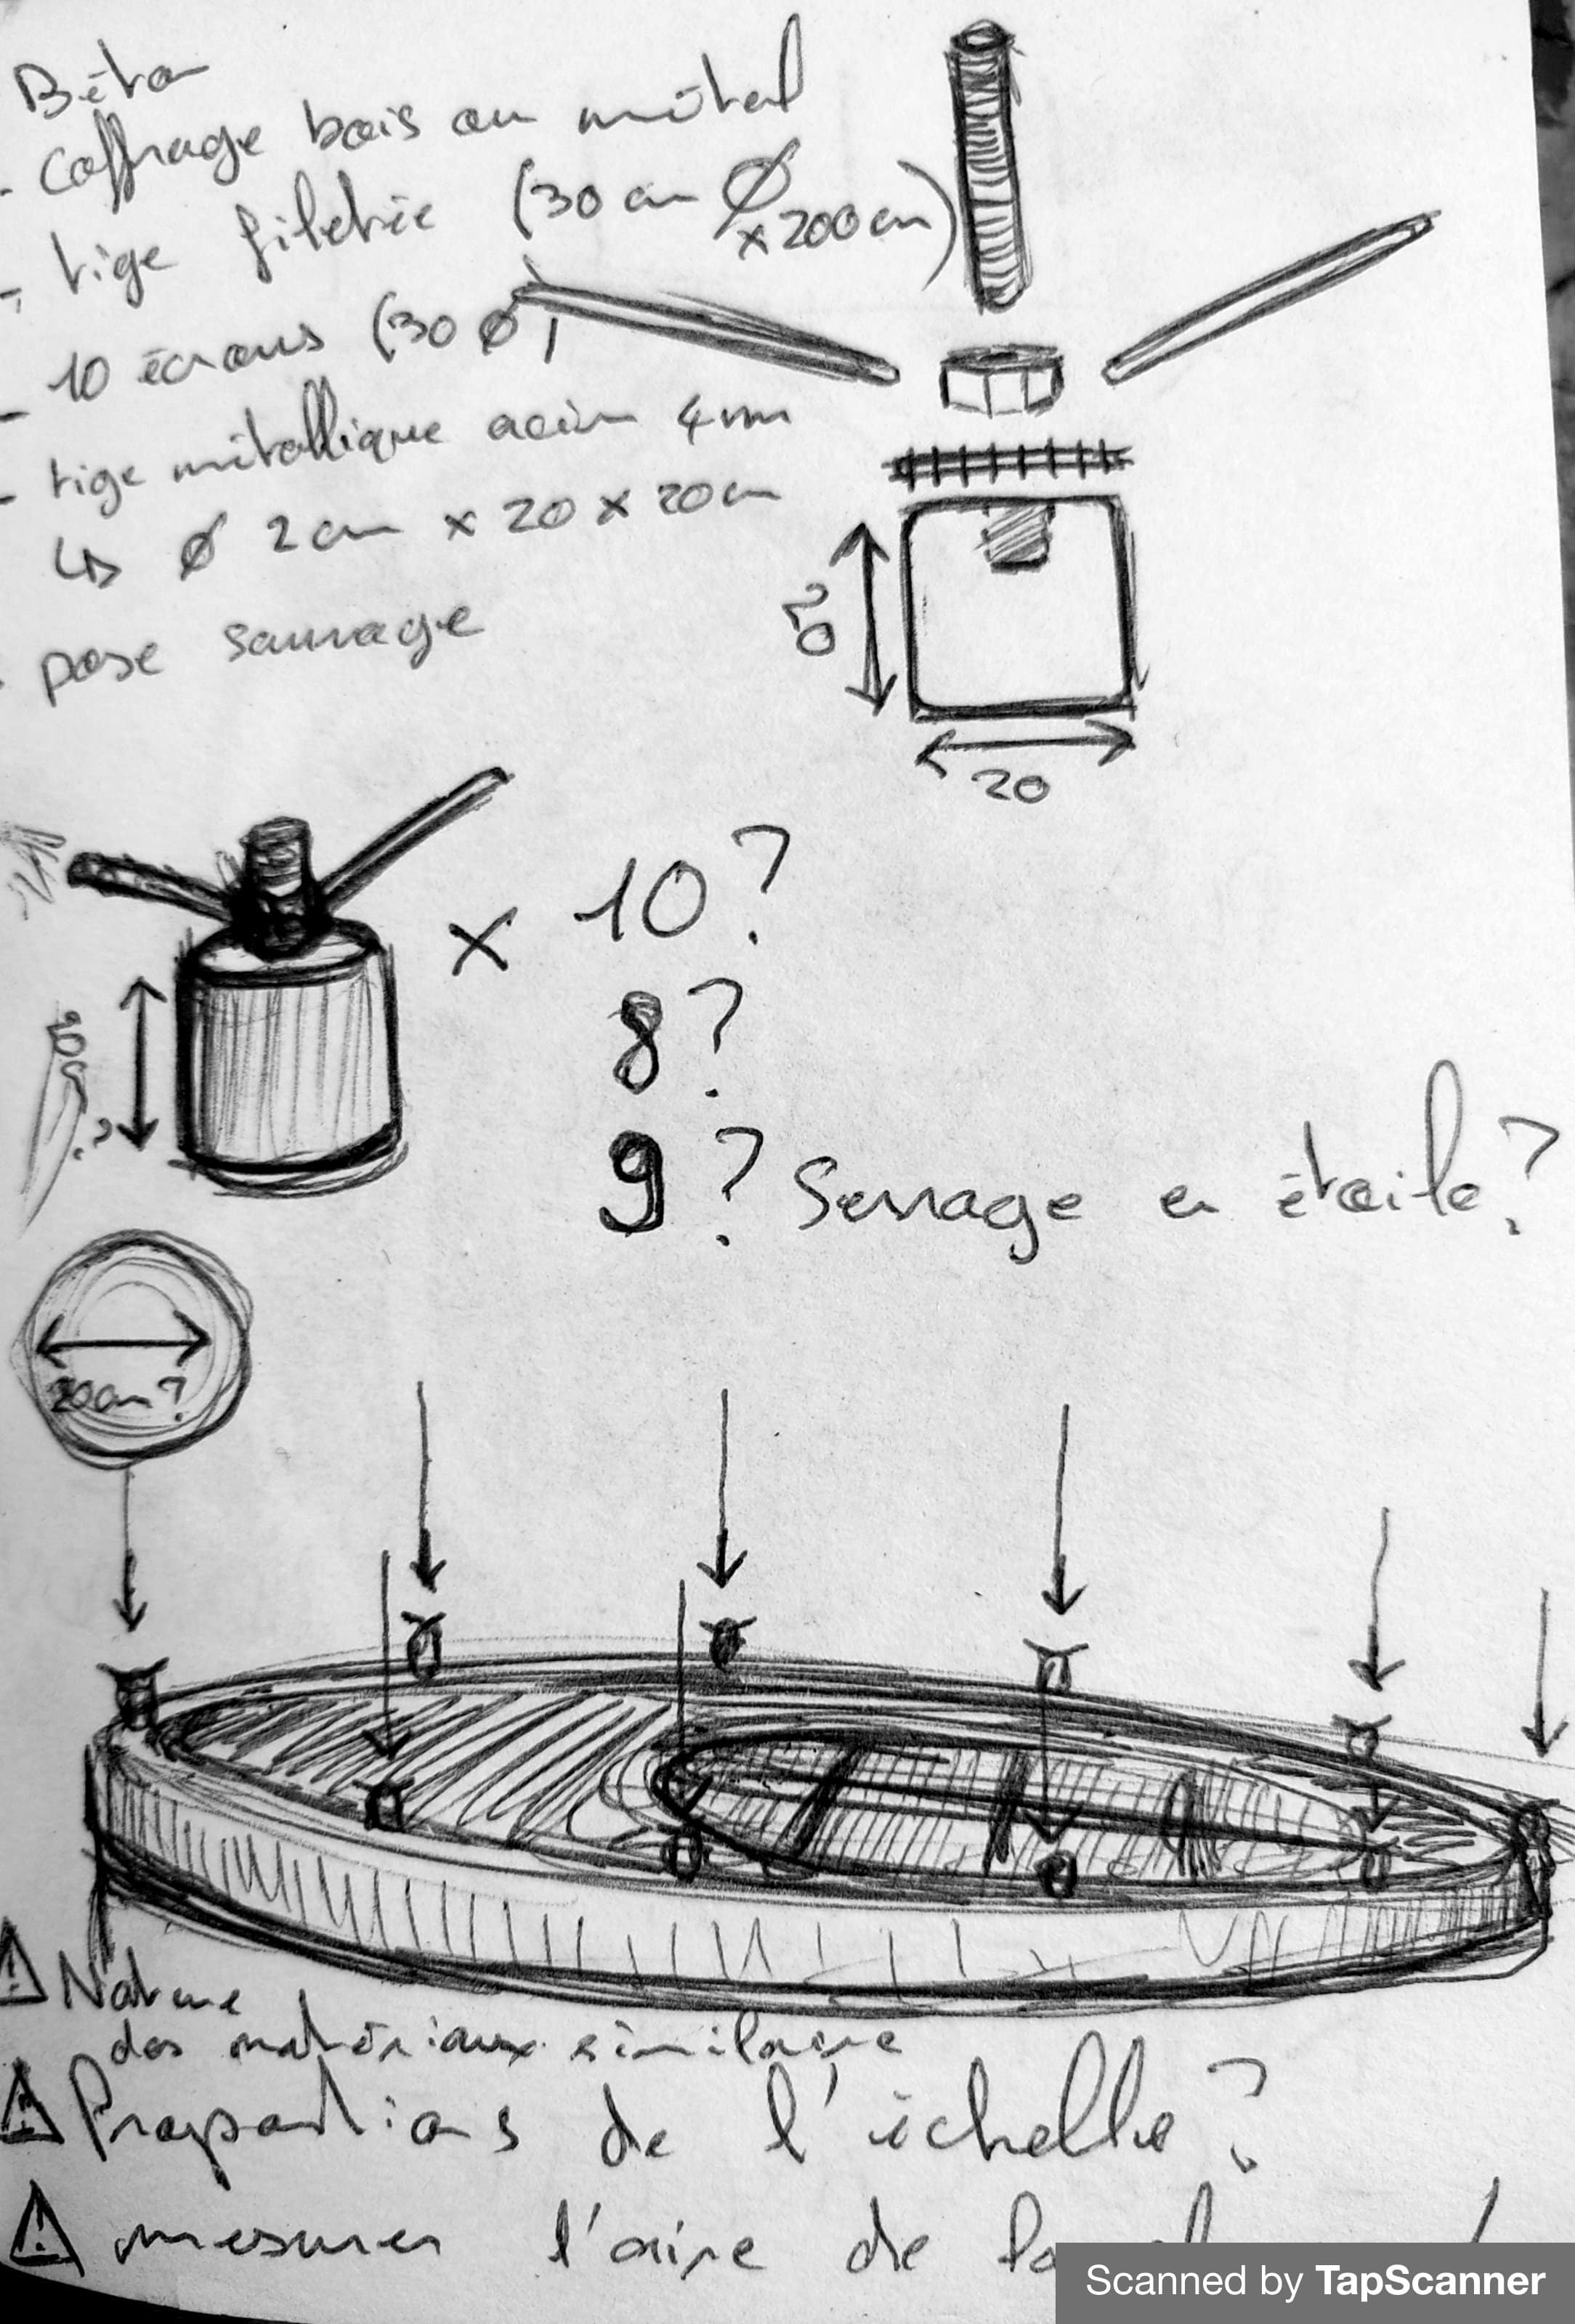 Béton
- coffrage bois ou métal
- tige filetée (30 cm Ø
x 200 cm)
- 10 écrous (30 Ø)
- tige métallique acier 4 mm
↳ Ø 2 cm x 20 x 20 cm
- pose sauvage
20
20
x 10?
8?
9? Serrage en étoile?
20 cm?
⚠ Nature
des matériaux similaire
⚠ Proportions de l'échelle?
⚠ mesurer l'aire de la
Scanned by TapScanner